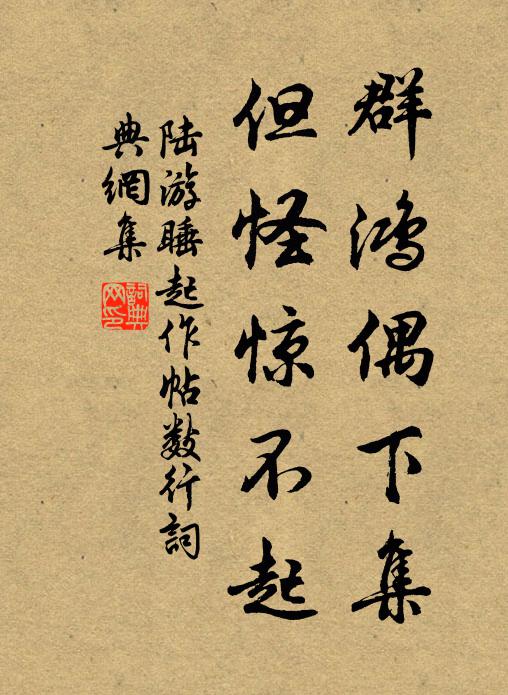 群鸿偶下集
但怪惊不起
陆游睡起作帖数行詞
典網集
詞典网印